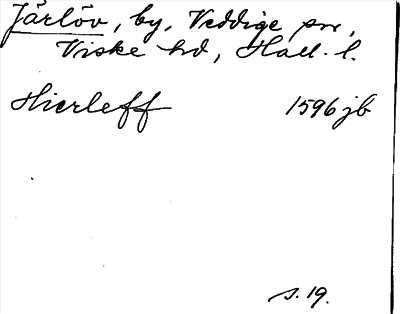 Järlöv, by, Veddige sn,
Viske hd, Hall. l.
Hierleff 1596 jb
s. 19.